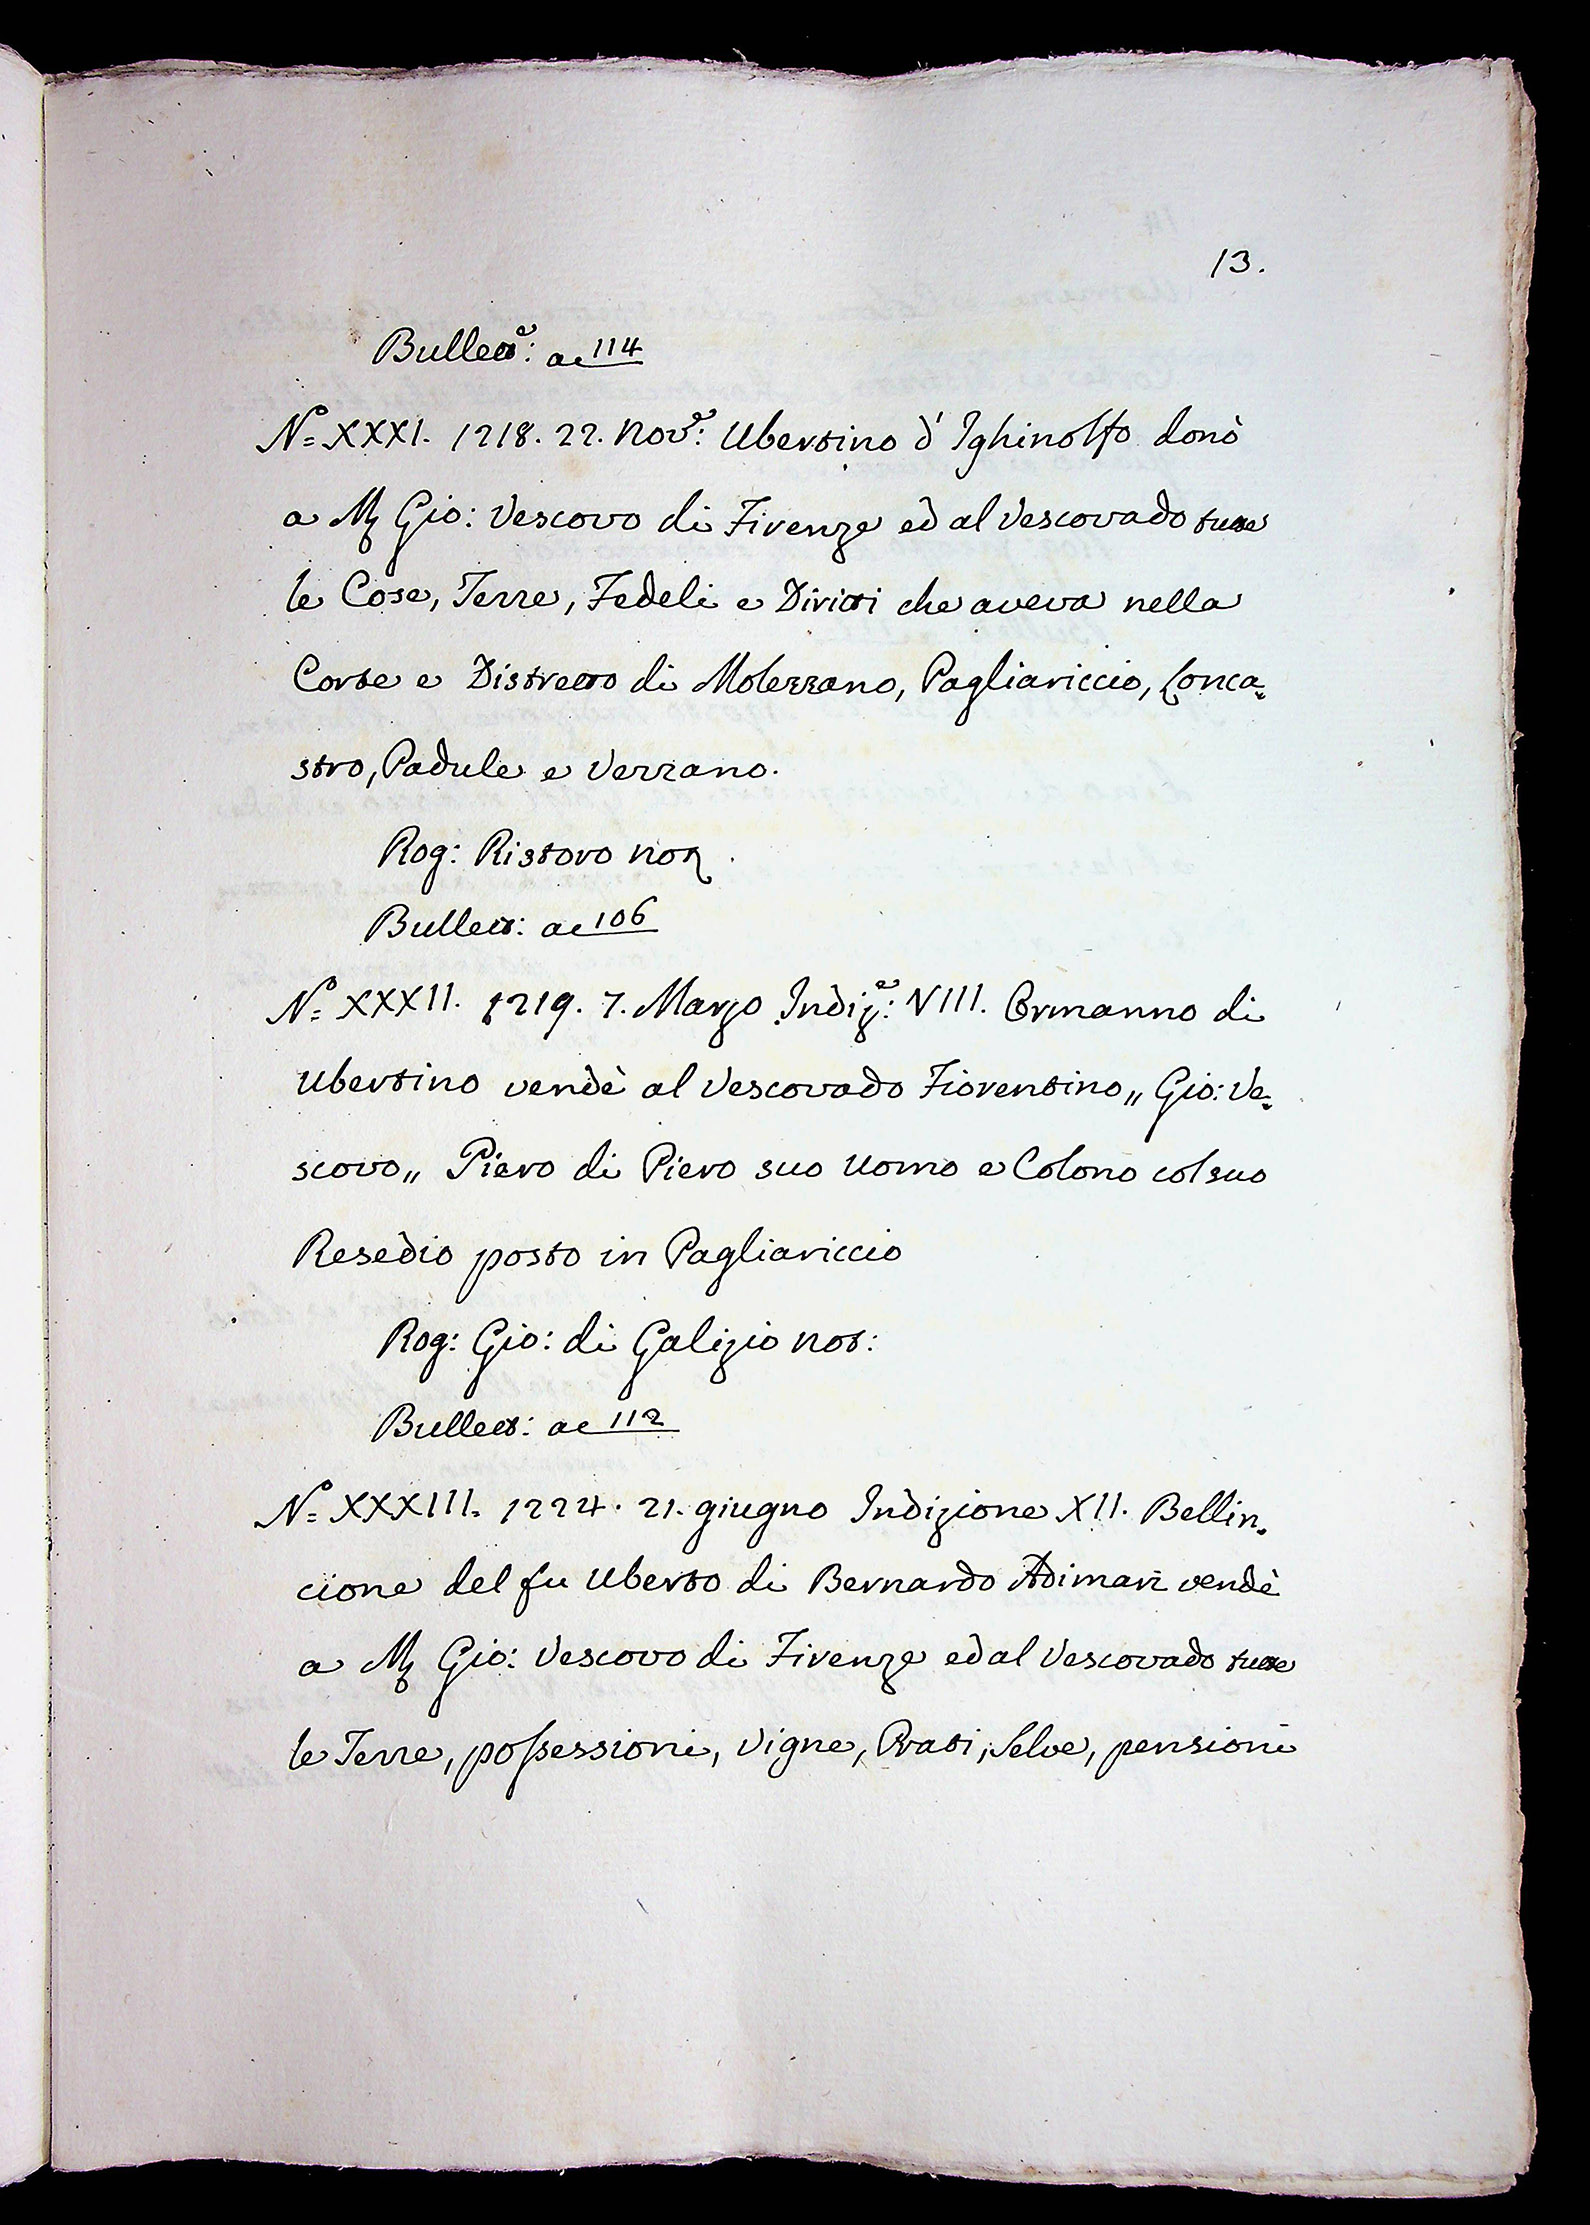 13.
Bullett.e: a c 114
N.o XXXI. 1218. 22. Nov.e: Ubertino d'Ighinolfo donò
a M. Gio: Vescovo di Firenze ed al Vescovado tutte
le Cose, Terre, Fedeli e Diritti che aveva nella
Corte e Distretto di Molezzano, Pagliariccio, Lonca=
stro, Padule e Verzano.
Rog: Ristoro not.
Bullett: a c 106
N.o XXXII. 1219. 7. Marzo Indiz.e: VIII. Ormanno di
Ubertino vendè al Vescovado Fiorentino „ Gio: Ve=
scovo „ Piero di Piero suo Uomo e Colono col suo
Resedio posto in Pagliariccio
Rog: Gio: di Galizio not:
Bullett: a c 112
N.o XXXIII. 1224. 21. giugno Indizione XII. Bellin=
cione del fu Uberto di Bernardo Adimari vendè
a M. Gio: Vescovo di Firenze ed al Vescovado tutte
le Terre, possessioni, Vigne, Prati, Selve, pensioni